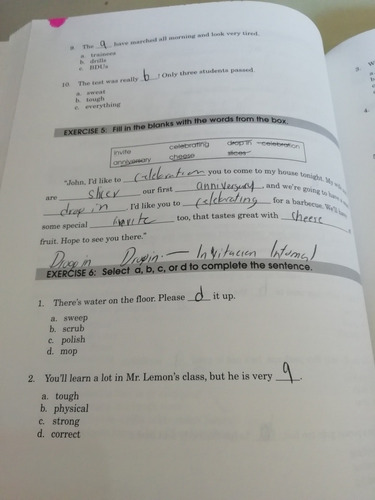 9. The a have marched all morning and look very tired.
a. trainees
b. drills
c. BDUs
10. The test was really b ! Only three students passed.
a. sweat
b. tough
c. everything
EXERCISE 5: Fill in the blanks with the words from the box.
invite celebrating drop in celebration
anniversary cheese slices
"John, I'd like to celebration you to come to my house tonight. My wife
are slicer our first anniversary, and we're going to have a
drop in. I'd like you to celebrating for a barbecue. We'll have
some special invite too, that tastes great with cheese
fruit. Hope to see you there."
Drop in Dropin.— Invitacion Informal
EXERCISE 6: Select a, b, c, or d to complete the sentence.
1. There's water on the floor. Please d it up.
a. sweep
b. scrub
c. polish
d. mop
2. You'll learn a lot in Mr. Lemon's class, but he is very a.
a. tough
b. physical
c. strong
d. correct
3. W
4.